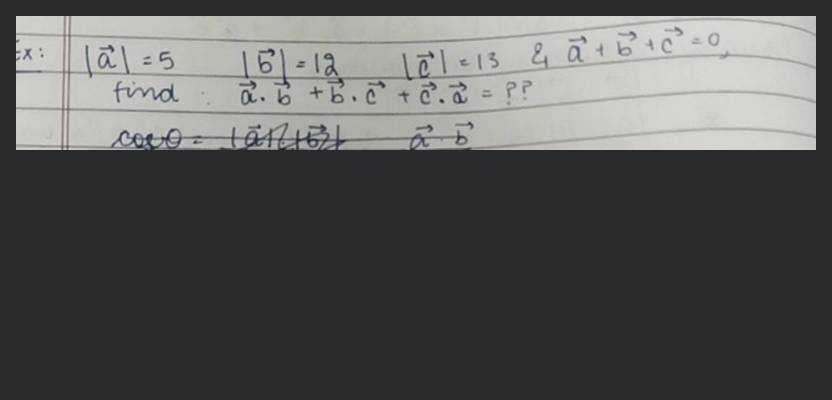 Ex: |a⃗| = 5 |b⃗| = 12 |c⃗| = 13 & a⃗ + b⃗ + c⃗ = 0,
find : a⃗ . b⃗ + b⃗ . c⃗ + c⃗ . a⃗ = ??
cos θ = |a⃗| |b⃗| a⃗ . b⃗